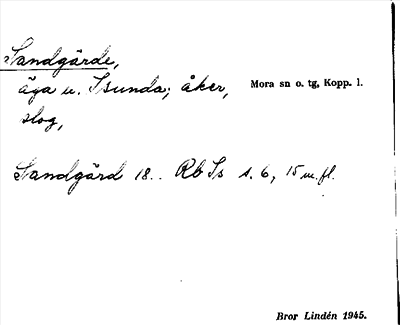 Sandgärde,
äga u. Isunda; åker, Mora sn o. tg, Kopp. l.
slog,
Sandgärd 18.. Rb Is s. 6, 15 m.fl.
Bror Lindén 1945.